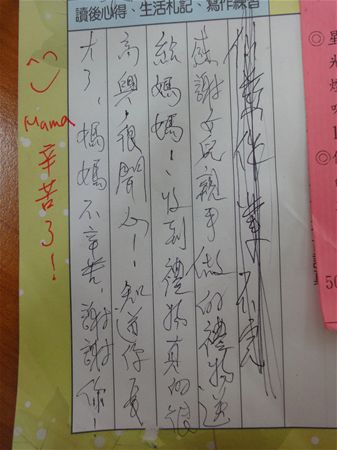 讀後心得、生活札記、寫作練習
作業不完
感謝女兒親手做的禮物送
給媽媽!收到禮物真的很
高興!很開心!知道你長
大了,媽媽不辛苦,謝謝你!
Mama
辛苦了!
◎星
光
◎
50